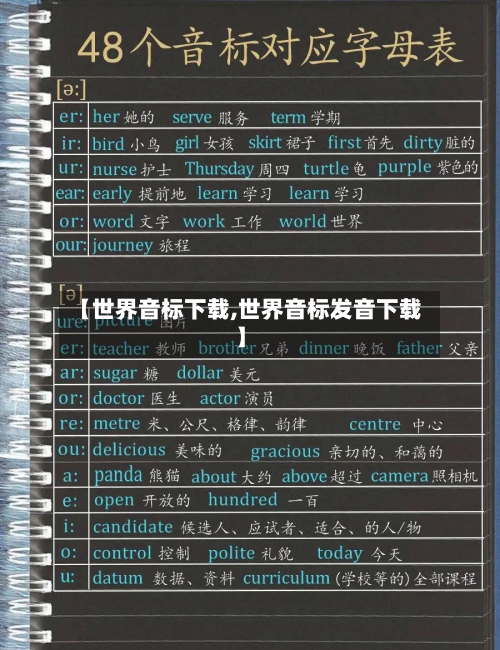 48个音标对应字母表
[ə:]
er: her 她的 serve 服务 term 学期
ir: bird 小鸟 girl 女孩 skirt 裙子 first 首先 dirty 脏的
ur: nurse 护士 Thursday 周四 turtle 龟 purple 紫色的
ear: early 提前地 learn 学习 learn 学习
or: word 文字 work 工作 world 世界
our: journey 旅程
[ə]
【世界音标下载,世界音标发音下载
】
ure: picture 图片
er: teacher 教师 brother 兄弟 dinner 晚饭 father 父亲
ar: sugar 糖 dollar 美元
or: doctor 医生 actor 演员
re: metre 米、公尺、格律、韵律 centre 中心
ou: delicious 美味的 gracious 亲切的、和蔼的
a: panda 熊猫 about 大约 above 超过 camera 照相机
e: open 开放的 hundred 一百
i: candidate 候选人、应试者、适合、的人/物
o: control 控制 polite 礼貌 today 今天
u: datum 数据、资料 curriculum (学校等的) 全部课程